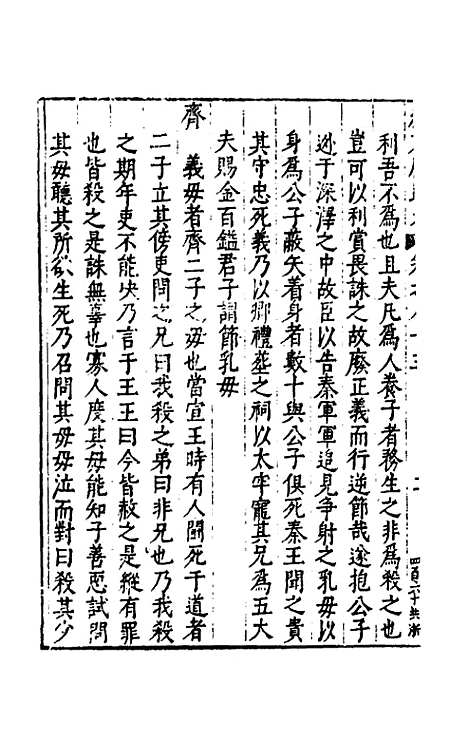 利吾不為也且夫凡為人養子者務生之非為殺之也
豈可以利賞畏誅之故廢正義而行逆節哉遂抱公子
逃于深澤之中故臣以告秦軍軍追見爭射之乳母以
身為公子蔽矢着身者數十與公子俱死秦王聞之貴
其守忠死義乃以卿禮塟之祠以太牢寵其兄為五大
夫賜金百鎰君子謂節乳母
齊
義母者齊二子之母也當宣王時有人鬭死于道者
二子立其傍吏問之兄曰我殺之弟曰非兄也乃我殺
之期年吏不能决乃言于王王曰今皆赦之是縱有罪
也皆殺之是誅無辜也寡人度其母能知子善惡試問
其母聽其所欲生死乃召問其母母泣而對曰殺其少